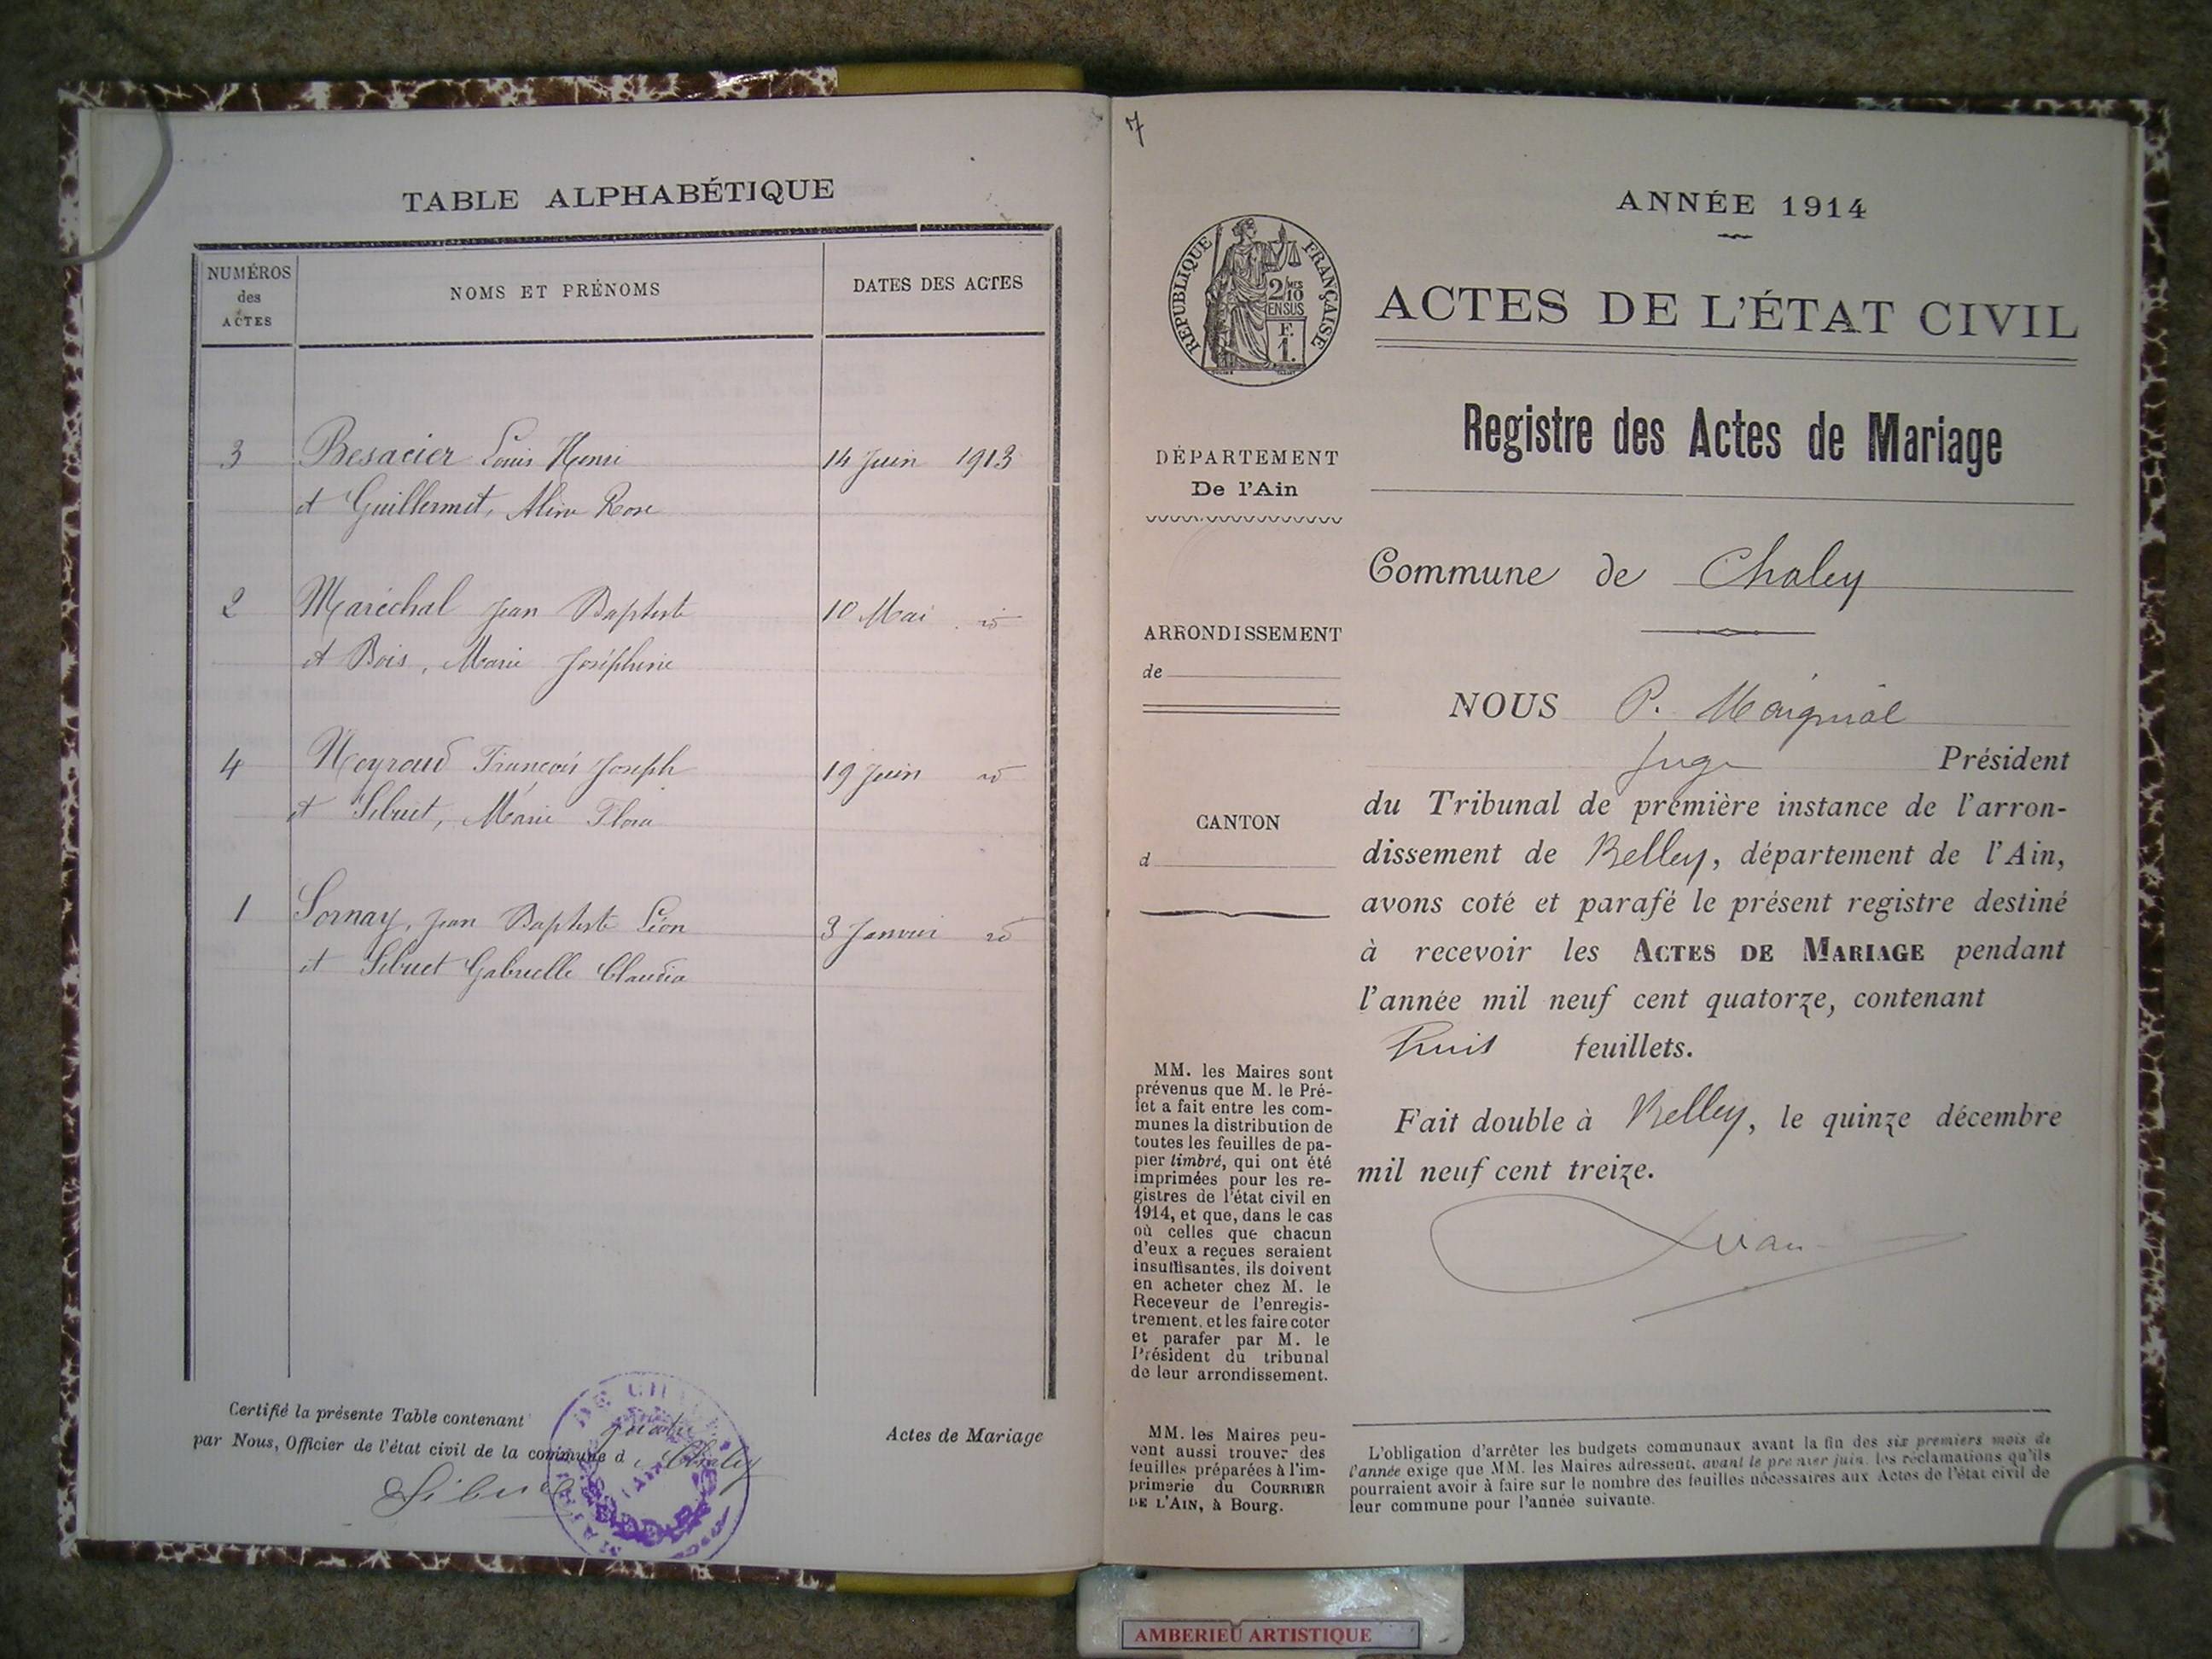 TABLE ALPHABÉTIQUE
NUMÉROS
des
ACTES
NOMS ET PRÉNOMS
DATES DES ACTES
3 Besacier Louis Henri 14 Juin 1913
et Guillermet, Aline Rose
2 Maréchal Jean Baptiste 10 Mai id
et Bois, Marie Joséphine
4 Neyroud François Joseph 19 Juin id
et Sibuet, Marie Flora
1 Sornay, Jean Baptiste Léon 3 Janvier id
et Sibuet Gabrielle Claudia
Certifié la présente Table contenant quatre Actes de Mariage
par Nous, Officier de l'état civil de la commune d Chaley
Sibuet
7
ANNÉE 1914
RÉPUBLIQUE FRANÇAISE
2/MES
10
EN SUS
F.
1.
ACTES DE L'ÉTAT CIVIL
Registre des Actes de Mariage
DÉPARTEMENT
De l'Ain
ARRONDISSEMENT
de
CANTON
d
MM. les Maires sont
prévenus que M. le Pré-
fet a fait entre les com-
munes la distribution de
toutes les feuilles de pa-
pier timbré, qui ont été
imprimées pour les re-
gistres de l'état civil en
1914, et que, dans le cas
où celles que chacun
d'eux a reçues seraient
insuffisantes, ils doivent
en acheter chez M. le
Receveur de l'enregis-
trement, et les faire coter
et parafer par M. le
Président du tribunal
de leur arrondissement.
MM. les Maires peu-
vent aussi trouver des
feuilles préparées à l'im-
primerie du COURRIER
DE L'AIN, à Bourg.
Commune de Chaley
NOUS P. Maignial
Juge Président
du Tribunal de première instance de l'arron-
dissement de Belley, département de l'Ain,
avons coté et parafé le présent registre destiné
à recevoir les ACTES DE MARIAGE pendant
l'année mil neuf cent quatorze, contenant
huit feuillets.
Fait double à Belley, le quinze décembre
mil neuf cent treize.
L'obligation d'arrêter les budgets communaux avant la fin des six premiers mois de
l'année exige que MM. les Maires adressent, avant le premier juin, les réclamations qu'ils
pourraient avoir à faire sur le nombre des feuilles nécessaires aux Actes de l'état civil de
leur commune pour l'année suivante.
AMBERIEU ARTISTIQUE